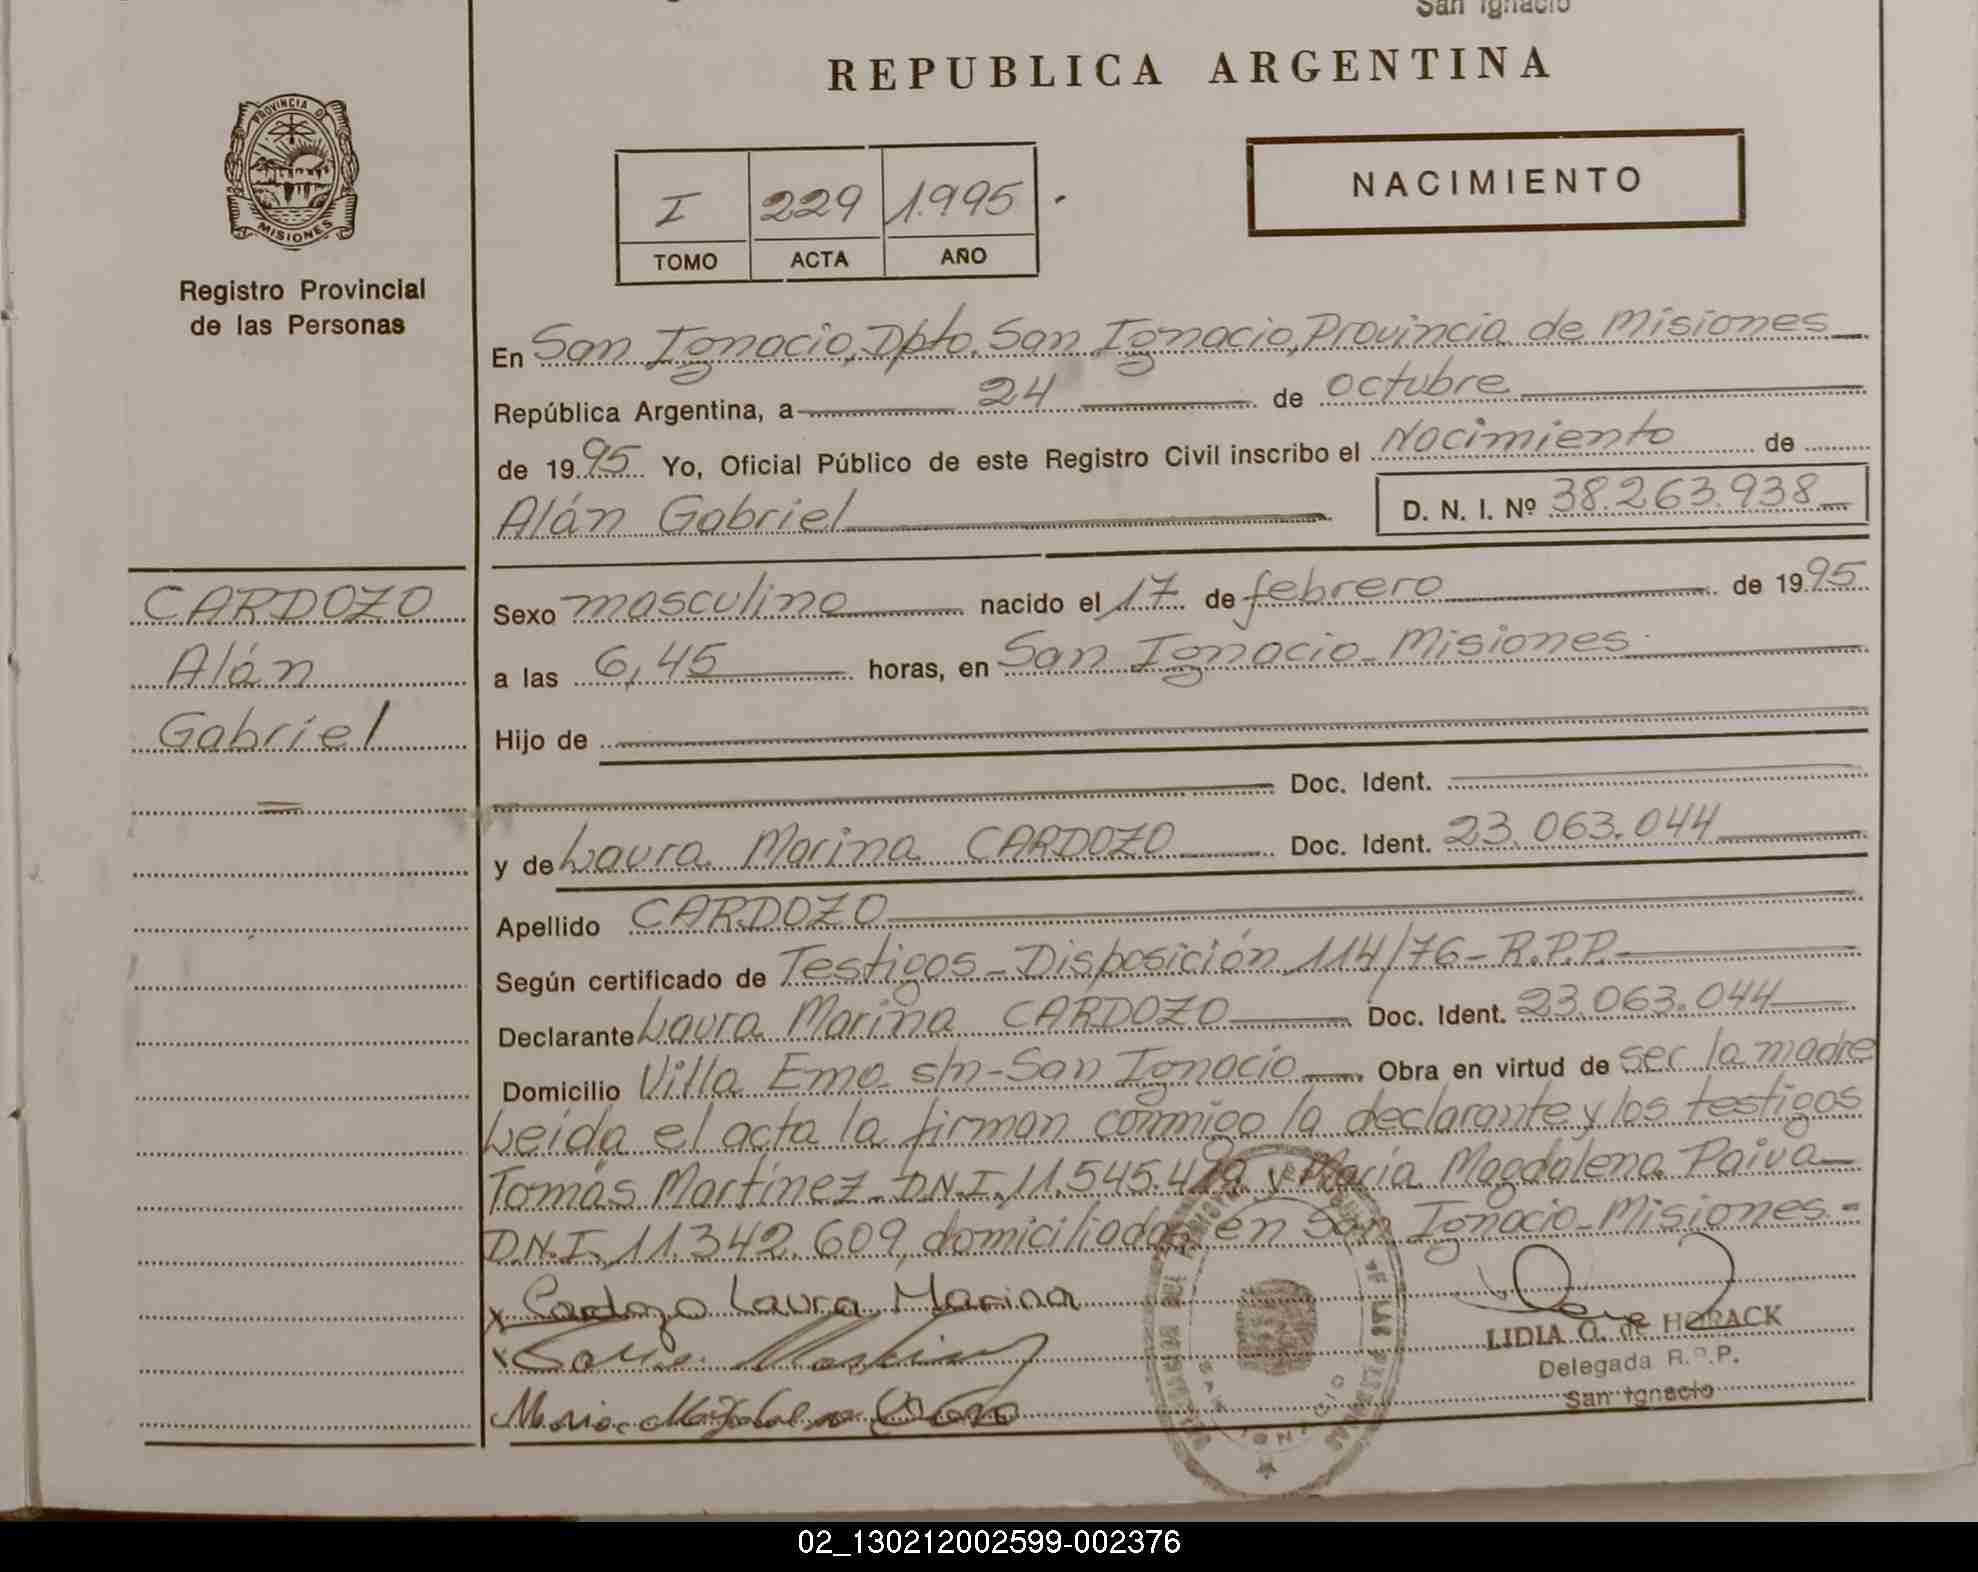 San Ignacio
REPUBLICA ARGENTINA
PROVINCIA DE
MISIONES
Registro Provincial
de las Personas
I 229 1.995
TOMO ACTA AÑO
NACIMIENTO
En San Ignacio, Dpto. San Ignacio, Provincia de Misiones
República Argentina, a 24 de octubre
de 1995 Yo, Oficial Público de este Registro Civil inscribo el Nacimiento de
Alán Gabriel D. N. I. Nº 38.263.938
CARDOZO
Alán
Gabriel
Sexo masculino nacido el 17 de febrero de 1995
a las 6,45 horas, en San Ignacio - Misiones
Hijo de
Doc. Ident.
y de Laura Marina CARDOZO Doc. Ident. 23.063.044
Apellido CARDOZO
Según certificado de Testigos - Disposición 114/76 - R.P.P.
Declarante Laura Marina CARDOZO Doc. Ident. 23.063.044
Domicilio Villa Emo s/n - San Ignacio Obra en virtud de ser la madre
Leída el acta la firman conmigo la declarante y los testigos
Tomás Martínez - D.N.I. 11.545. y María Magdalena Paiva
D.N.I. 11.342.609, domiciliados en San Ignacio - Misiones.-
x Cardozo Laura Marina
LIDIA O. de HORACK
Delegada R.P.P.
San Ignacio
02_130212002599-002376